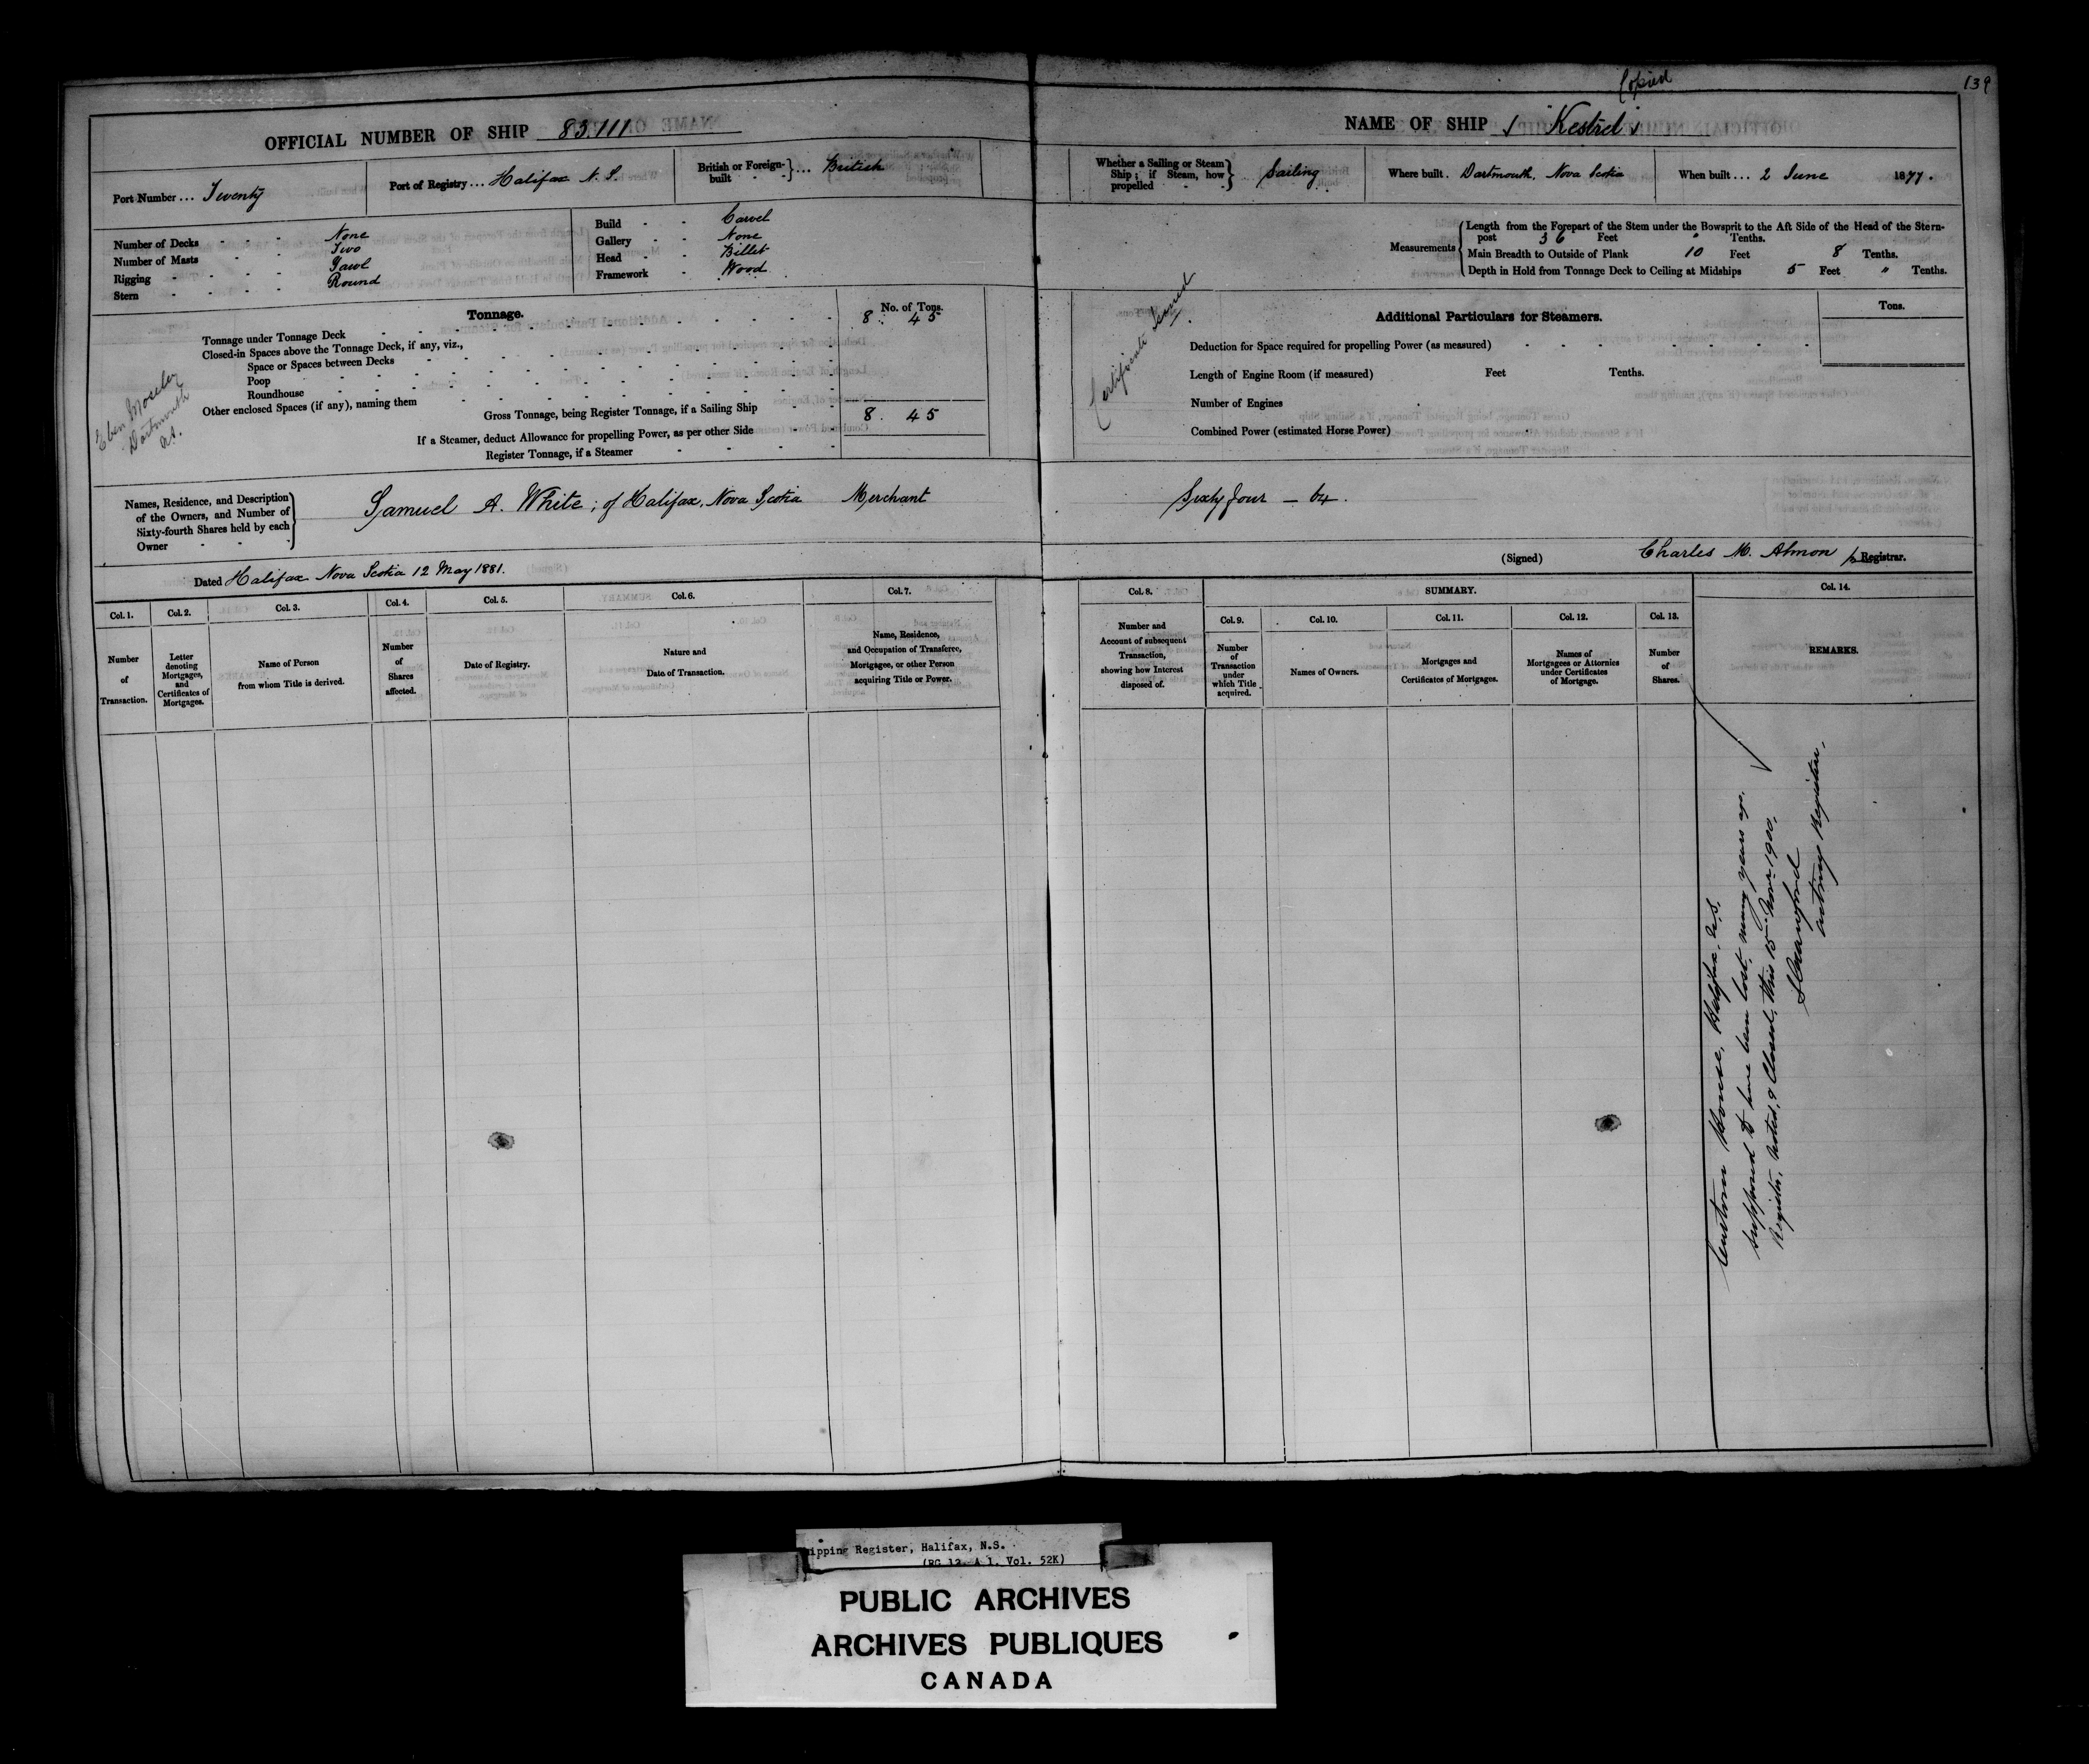 Copied
139
OFFICIAL NUMBER OF SHIP 83.111
NAME OF SHIP "Kestrel"
Port Number ... Twenty
Port of Registry ... Halifax N. S.
British or Foreign-built ... British
Whether a Sailing or Steam Ship; if Steam, how propelled Sailing
Where built. Dartmouth, Nova Scotia
When built ... 2 June 1877.
Number of Decks - - - None
Number of Masts - - Two
Rigging - - - - Yawl
Stern - - - - Round
Build - - Carvel
Gallery - - None
Head - - Billet
Framework - Wood
Measurements
Length from the Forepart of the Stem under the Bowsprit to the Aft Side of the Head of the Stern-
post 36 Feet " Tenths.
Main Breadth to Outside of Plank 10 Feet 8 Tenths.
Depth in Hold from Tonnage Deck to Ceiling at Midships 5 Feet " Tenths.
Tonnage.
No. of Tons.
Tonnage under Tonnage Deck 8 . 45
Closed-in Spaces above the Tonnage Deck, if any, viz.,
Space or Spaces between Decks
Poop
Roundhouse
Other enclosed Spaces (if any), naming them
Gross Tonnage, being Register Tonnage, if a Sailing Ship 8 . 45
If a Steamer, deduct Allowance for propelling Power, as per other Side
Register Tonnage, if a Steamer
Eben Moseley
Dartmouth
NS.
Certificate Issued
Additional Particulars for Steamers.
Tons.
Deduction for Space required for propelling Power (as measured)
Length of Engine Room (if measured) Feet Tenths.
Number of Engines
Combined Power (estimated Horse Power)
Names, Residence, and Description
of the Owners, and Number of
Sixty-fourth Shares held by each
Owner
Samuel A. White; of Halifax, Nova Scotia Merchant Sixty four — 64.
Dated Halifax Nova Scotia 12 May 1881.
(Signed) Charles M. Almon p Registrar.
Col. 1.
Number
of
Transaction.
Col. 2.
Letter
denoting
Mortgages,
and
Certificates of
Mortgages.
Col. 3.
Name of Person
from whom Title is derived.
Col. 4.
Number
of
Shares
affected.
Col. 5.
Date of Registry.
Col. 6.
Nature and
Date of Transaction.
Col. 7.
Name, Residence,
and Occupation of Transferee,
Mortgagee, or other Person
acquiring Title or Power.
Col. 8.
Number and
Account of subsequent
Transaction,
showing how Interest
disposed of.
SUMMARY.
Col. 9.
Number
of
Transaction
under
which Title
acquired.
Col. 10.
Names of Owners.
Col. 11.
Mortgages and
Certificates of Mortgages.
Col. 12.
Names of
Mortgagees or Attornies
under Certificates
of Mortgage.
Col. 13.
Number
of
Shares.
Col. 14.
REMARKS.
Custom House, Halifax, N.S.
supposed to have been lost, many years ago.
Register, Noted, & Closed, this 15 Nov 1900,
acting Registrar,
ipping Register, Halifax, N.S.
(RG 12, A 1, Vol. 52K)
PUBLIC ARCHIVES
ARCHIVES PUBLIQUES
CANADA